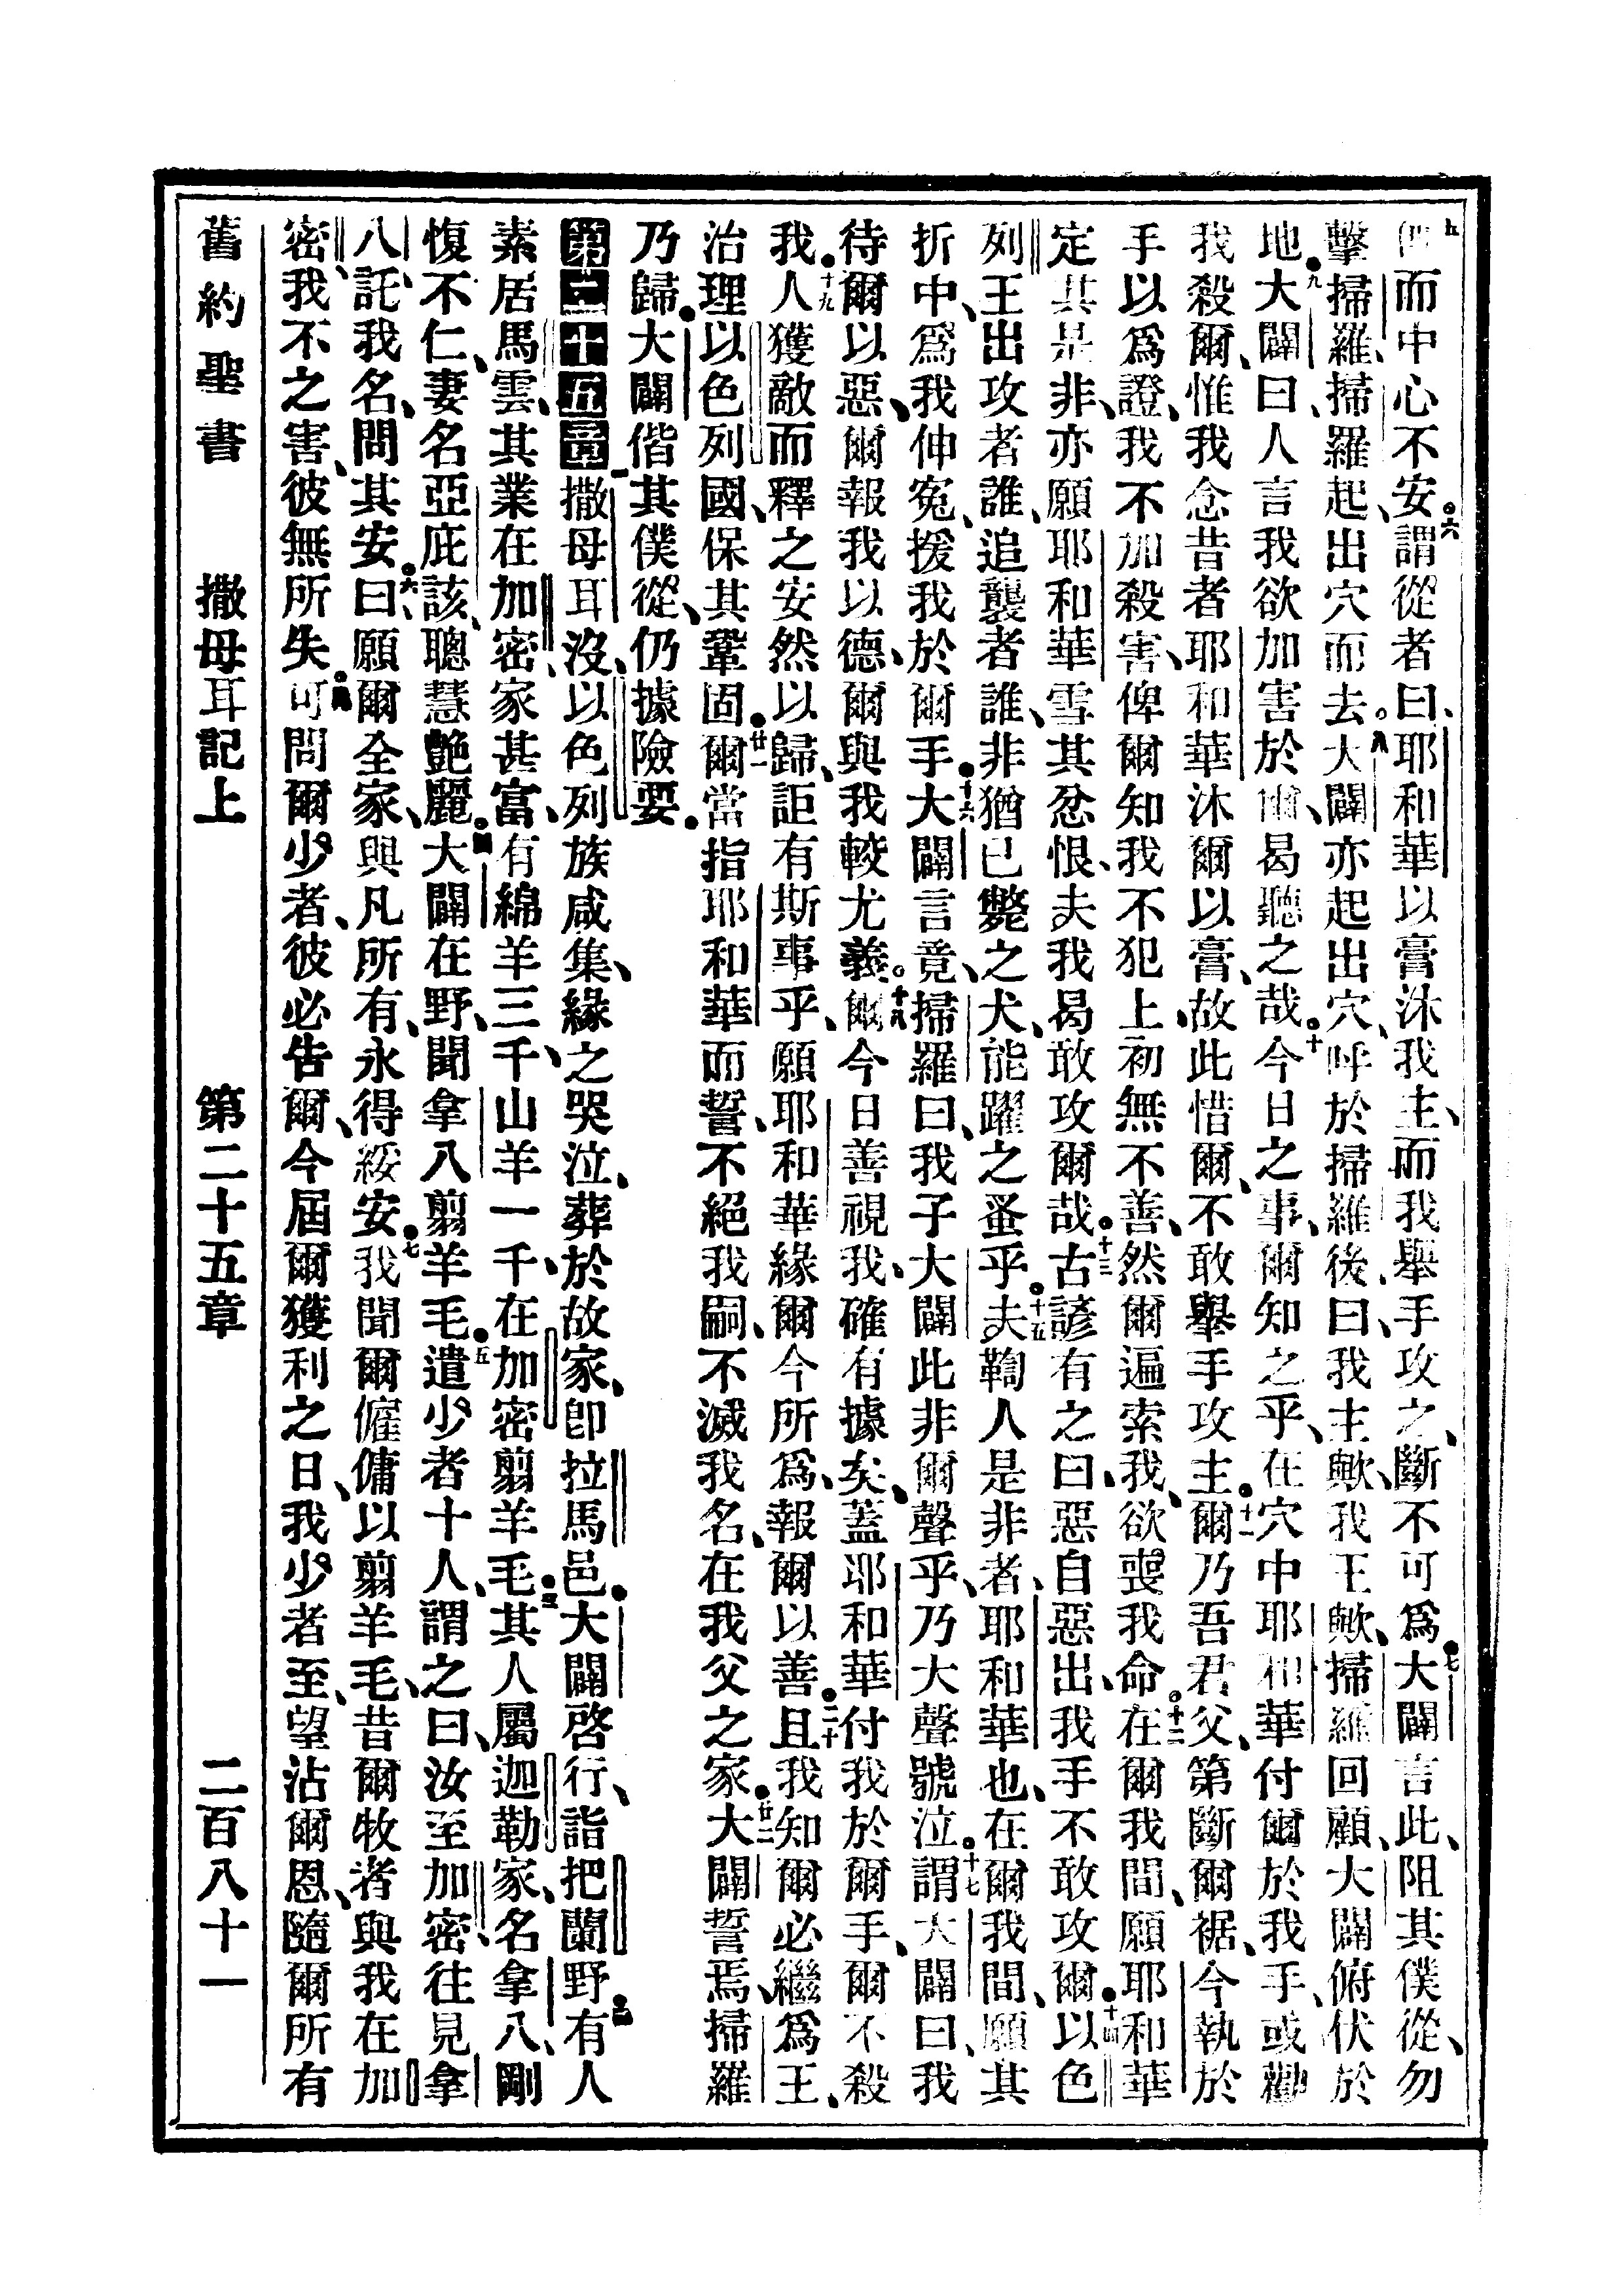 五而中心不安、六謂從者曰、耶和華以膏沐我主、而我舉手攻之、斷不可爲、七大闢言此、阻其僕從、勿
擊掃羅、掃羅起、出穴而去。八大闢亦起出穴、呼於掃羅後曰、我主歟、我王歟、掃羅回顧、大闢俯伏於
地。九大闢曰、人言我欲加害於爾、曷聽之哉。十今日之事、爾知之乎、在穴中耶和華付爾於我手、或勸
我殺爾、惟我念昔者耶和華沐爾以膏、故此惜爾、不敢舉手攻主。十一爾乃吾君父、第斷爾裾、今執於
手以爲證、我不加殺害、俾爾知我不犯上、初無不善、然爾遍索我、欲喪我命。十二在爾我間、願耶和華
定其是非、亦願耶和華雪其忿恨、夫我曷敢攻爾哉。十三古諺有之曰、惡自惡出、我手不敢攻爾。十四以色
列王出攻者誰、追襲者誰、非猶已斃之犬、能躍之蚤乎。十五夫鞫人是非者、耶和華也、在爾我間、願其
折中、爲我伸寃、援我於爾手。十六大闢言竟、掃羅曰、我子大闢、此非爾聲乎、乃大聲號泣。十七謂大闢曰、我
待爾以惡、爾報我以德、爾與我較尤義。十八爾今日善視我、確有據矣、蓋耶和華付我於爾手、爾不殺
我。十九人獲敵而釋之安然以歸、詎有斯事乎、願耶和華緣爾今所爲、報爾以善。二十且我知爾必繼爲王、
治理以色列國、保其鞏固。廿一爾當指耶和華而誓、不絕我嗣、不滅我名、在我父之家。廿二大闢誓焉、掃羅
乃歸。大闢偕其僕從、仍據險要。
第二十五章 一撒母耳沒、以色列族咸集、緣之哭泣、葬於故家、卽拉馬邑。大闢啓行、詣把蘭野。二有人
素居馬雲、其業在加密、家甚富、有綿羊三千、山羊一千、在加密翦羊毛。三其人屬迦勒家、名拿八、剛
愎不仁、妻名亞庇該、聰慧艶麗。四大闢在野、聞拿八翦羊毛。五遣少者十人、謂之曰、汝至加密、往見拿
八、託我名、問其安。六曰、願爾全家、與凡所有、永得綏安。七我聞爾僱傭以翦羊毛、昔爾牧者與我在加
密、我不之害、彼無所失。八可問爾少者、彼必吿爾、今屆爾獲利之日、我少者至、望沾爾恩、隨爾所有
舊約聖書 撒母耳記上 第二十五章 二百八十一